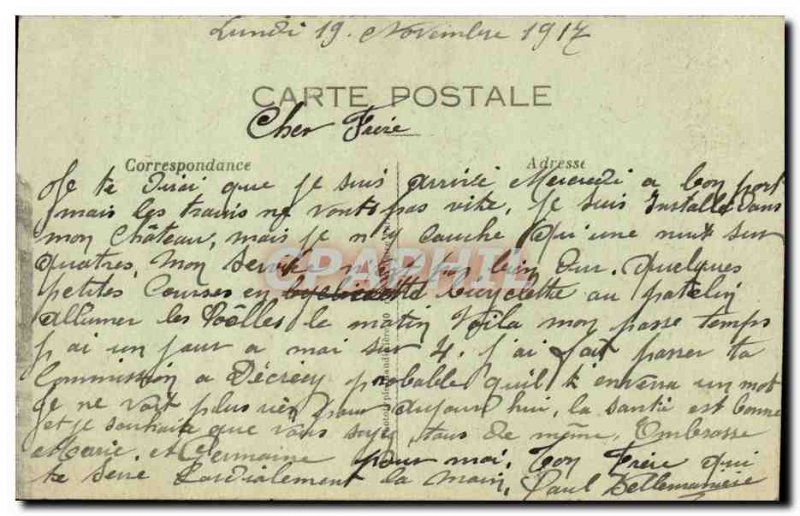 Lundi 19. Novembre 1917
CARTE POSTALE
Cher Frère
Correspondance
Adresse
Je te dirai que je suis arrivé Mercredi a bon port
mais les trains ne vonts pas vite. Je suis Installé dans
mon Château, mais je n'y couche qu'une nuit sur
quatres, mon service n'est pas bien Dur. Quelques
petites courses en bycliclette bicyclette au patelin
allumer les Poëlles le matin Voila mon passe temps
j'ai un jour a moi sur 4. j'ai fait passer ta
Commission a Décrecy probable qu'il t'envera un mot
Je ne voit plus rien pour aujourd'hui, la santé est bonne
et je souhaite que vous soyez tous de même, Embrasse
Marie, et Germaine pour moi. Ton Frère qui
te serre Cordialement la main, Paul
CPAPHIL